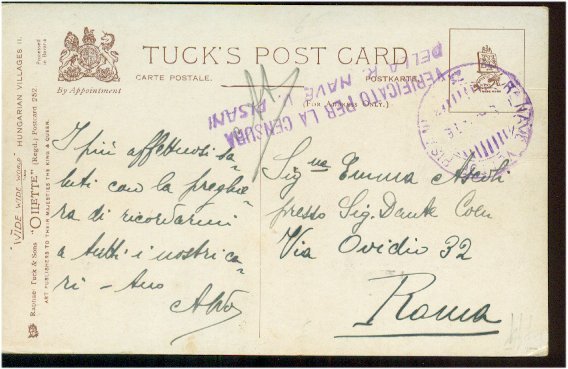 By Appointment
TUCK'S POST CARD
CARTE POSTALE.
POSTKARTE.
(FOR ADDRESS ONLY.)
VERIFICATO PER LA CENSURA
DELLA R. NAVE V. PISANI
I più affettuosi sa-
luti con la preghie-
ra di ricordarmi
a tutti i nostri ca-
ri - tuo
Aldo
Sig.na Emma Ascoli
presso Sig. Dante Coen
Via Ovidio 32
Roma
Raphael Tuck & Sons' "OILETTE" (Regd.) Postcard 252.
ART PUBLISHERS TO THEIR MAJESTIES THE KING & QUEEN.
"WIDE WIDE WORLD" HUNGARIAN VILLAGES II.
Processed in
R. NAVE